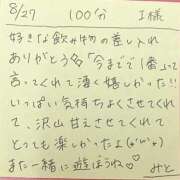 8/27 100分 I様
好きな飲み物の差し入れ
ありがとう。「今までで1番」って
言ってくれて凄く嬉しかった!!
いっぱい気持ちよくさせてくれ
て、沢山甘えさせてくれて
とっても楽しかったよ(*´▽`*)
また一緒に遊ぼうね♡
みと